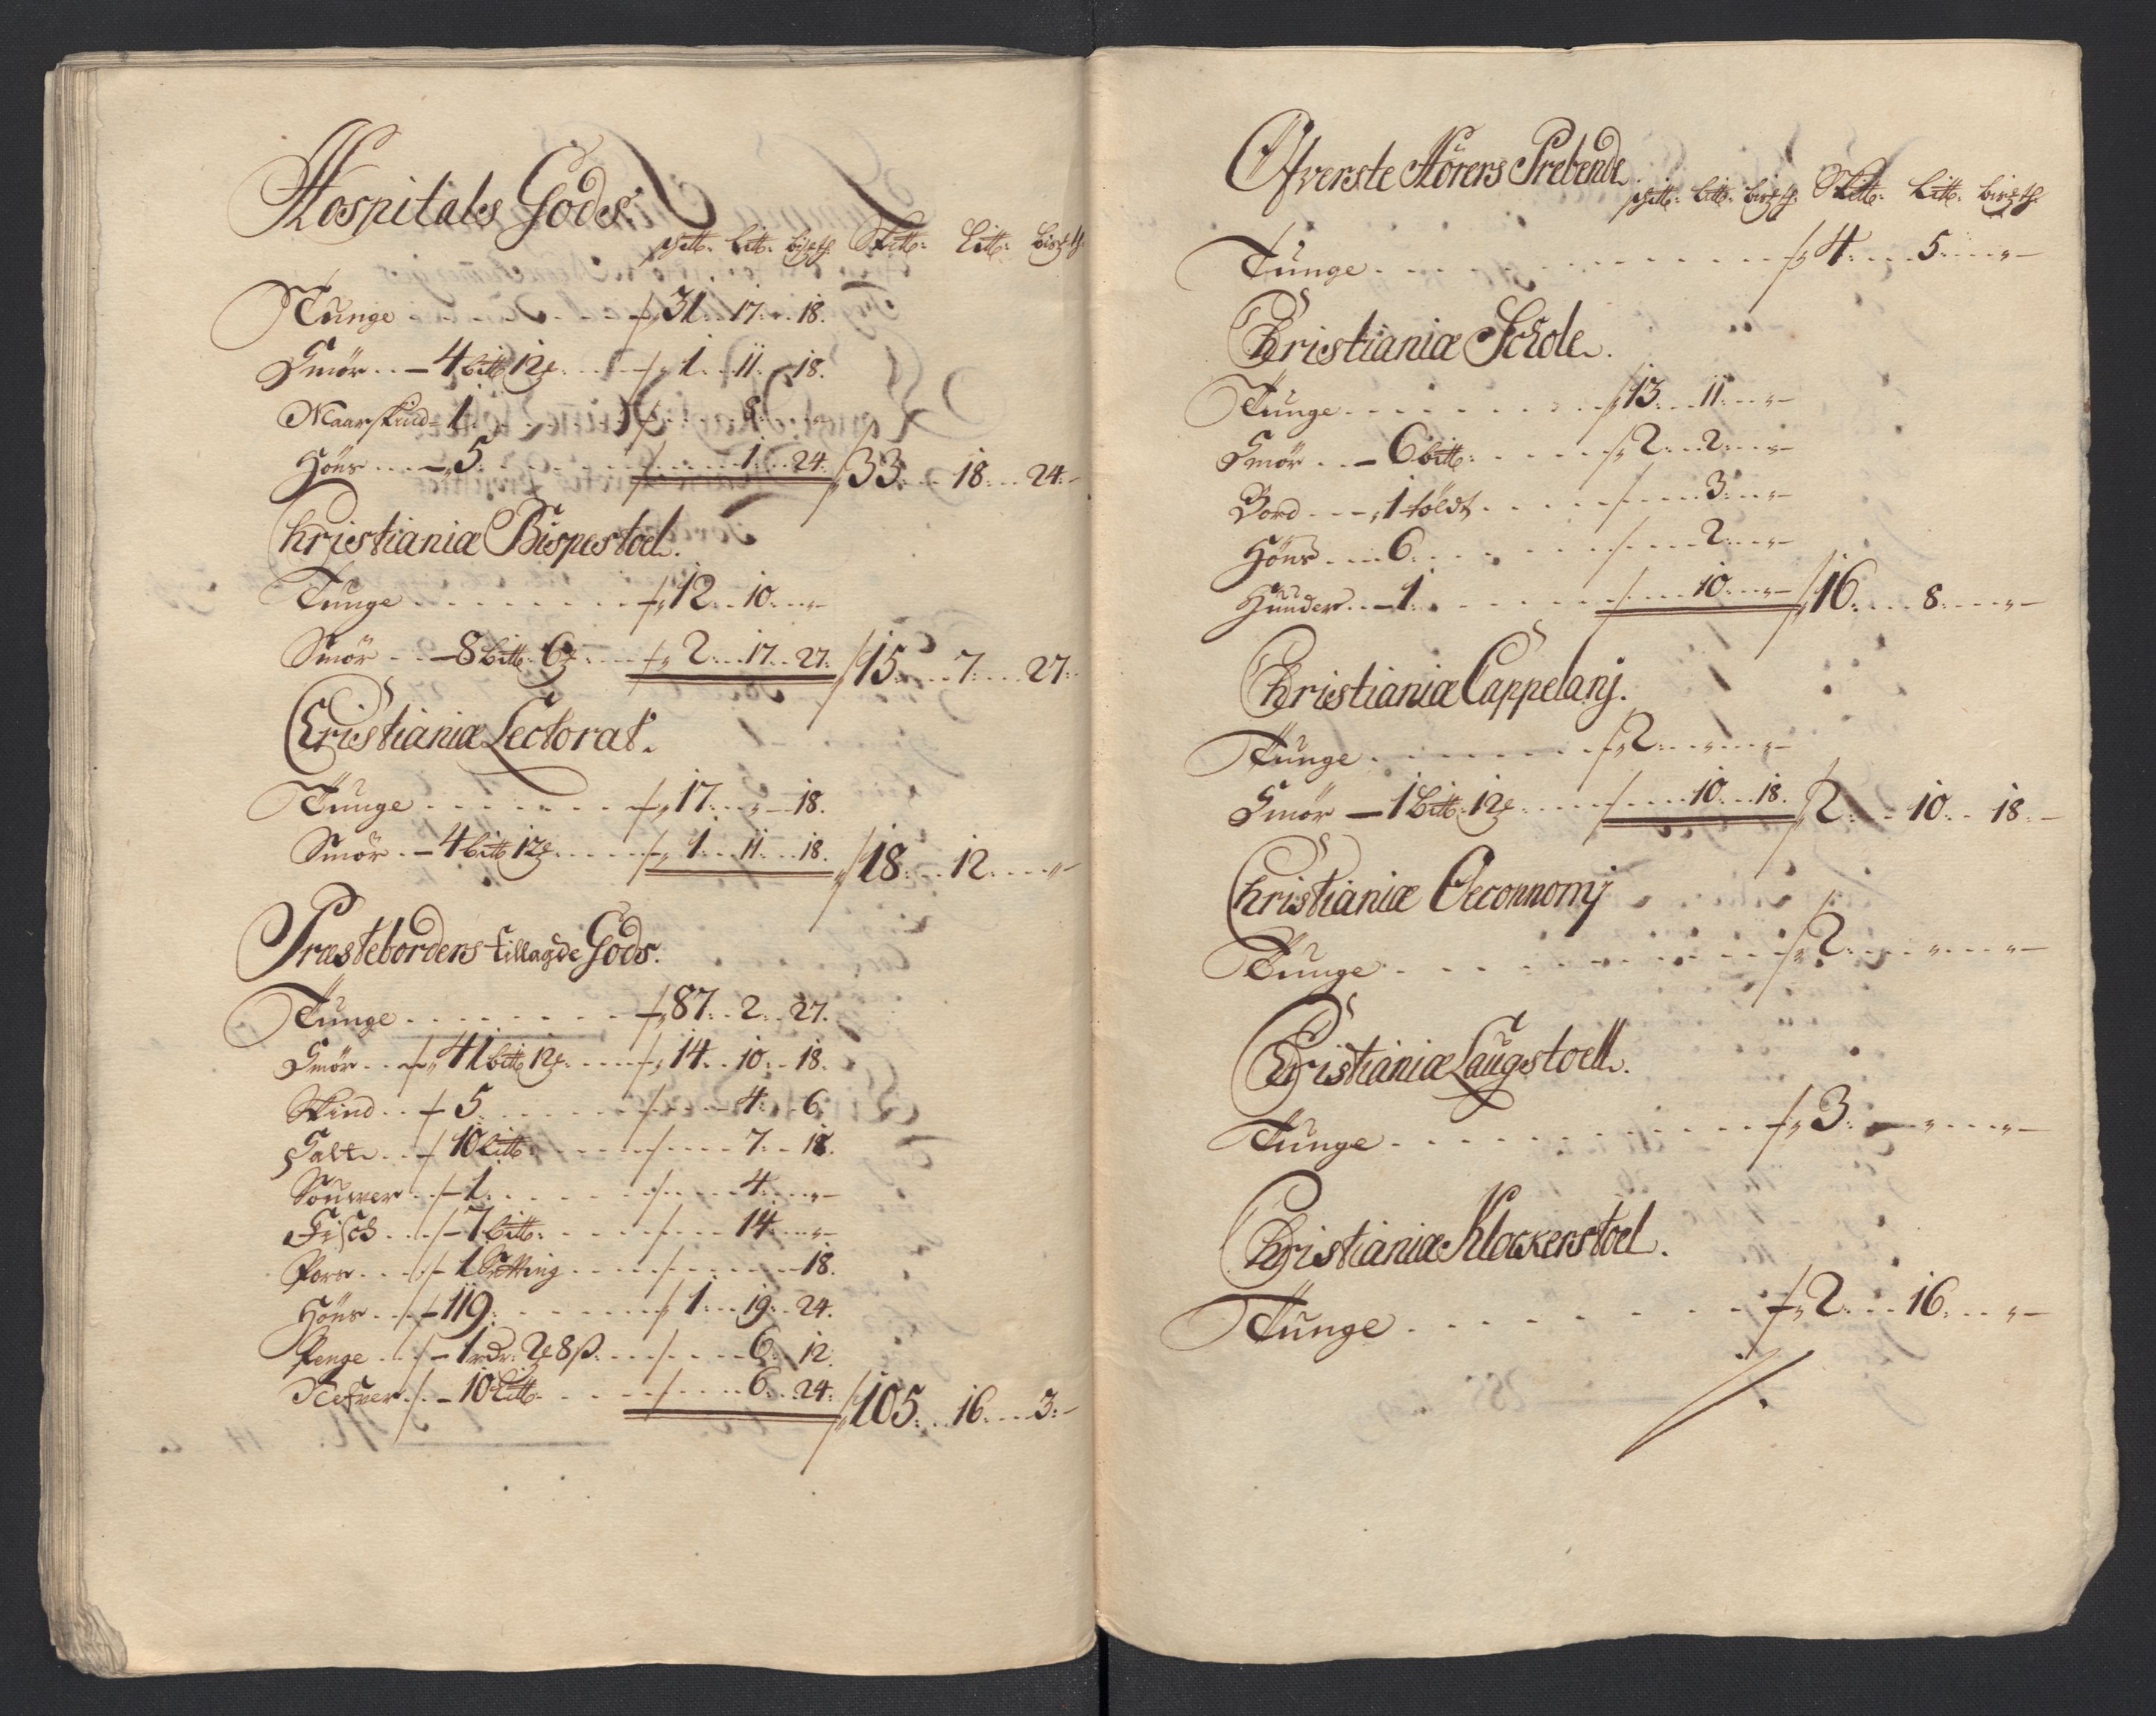 Hospitals Gods.
Skl℔: Li℔: bisℳ. Skl℔: Li℔: bisℳ.
Tunge . . . . 31: 17: 18.
Smör . . 4 bi℔ 12 . . 1: 11: 18.
Maarskind 1: . . . 8: "
Höns . . 5: . . . 1: 24: 33: 18: 24:
Christianiæ Bispestoel.
Tunge . . . . 12: 10: "
Smör . . 8 bi℔: 6 . . 2: 17: 27: 15: 7: 27:
Christianiæ Lectorat.
Tunge . . . . 17: " 18.
Smör . . 4 bi℔ 12 . . 1: 11: 18. 18: 12: "
Præstebordens tillagde Gods.
Tunge . . . . 87: 2: 27.
Smör . . 41 bi℔ 12 . . 14: 10: 18.
Skind . . 5. . . . 4: 6.
Salt . . 10 Li℔: . . . 7: 18.
Souver . . 1. . . . 4: "
Fisch . . 7 bi℔: . . . 14: "
Korn . . 1 Setting . . . 18.
Höns . . 119: . . . 1: 19: 24.
Penge . . 1 rdr: 2 8 ß: . . . 6: 12:
Nefver . . 10 Li℔: . . . 6: 24: 105: 16: 3:
Øfverste Hörers Prebende
Skl℔: Li℔: bisℳ. Skl℔: Li℔: bisℳ.
Tunge . . . . 4: 5: "
Christianiæ Schole.
Tunge . . . . 13: 11: "
Smör . . 6 bi℔: . . . 2: 2: "
Bord . . 1 töldt . . . 3: "
Höns . . 6: . . . 2: "
Huuder . . 1: . . . 10: " 16: 8: "
Christianiæ Cappelanj.
Tunge . . . . 2: " "
Smör 1 bi℔: 12 . . 10: 18. 2: 10: 18:
Christianiæ Oeconnomj
Tunge . . . . 2: " "
Christianiæ Laugstoell.
Tunge . . . . 3: " "
Christianiæ Klockerstoel.
Tunge . . . . 2: 16: "